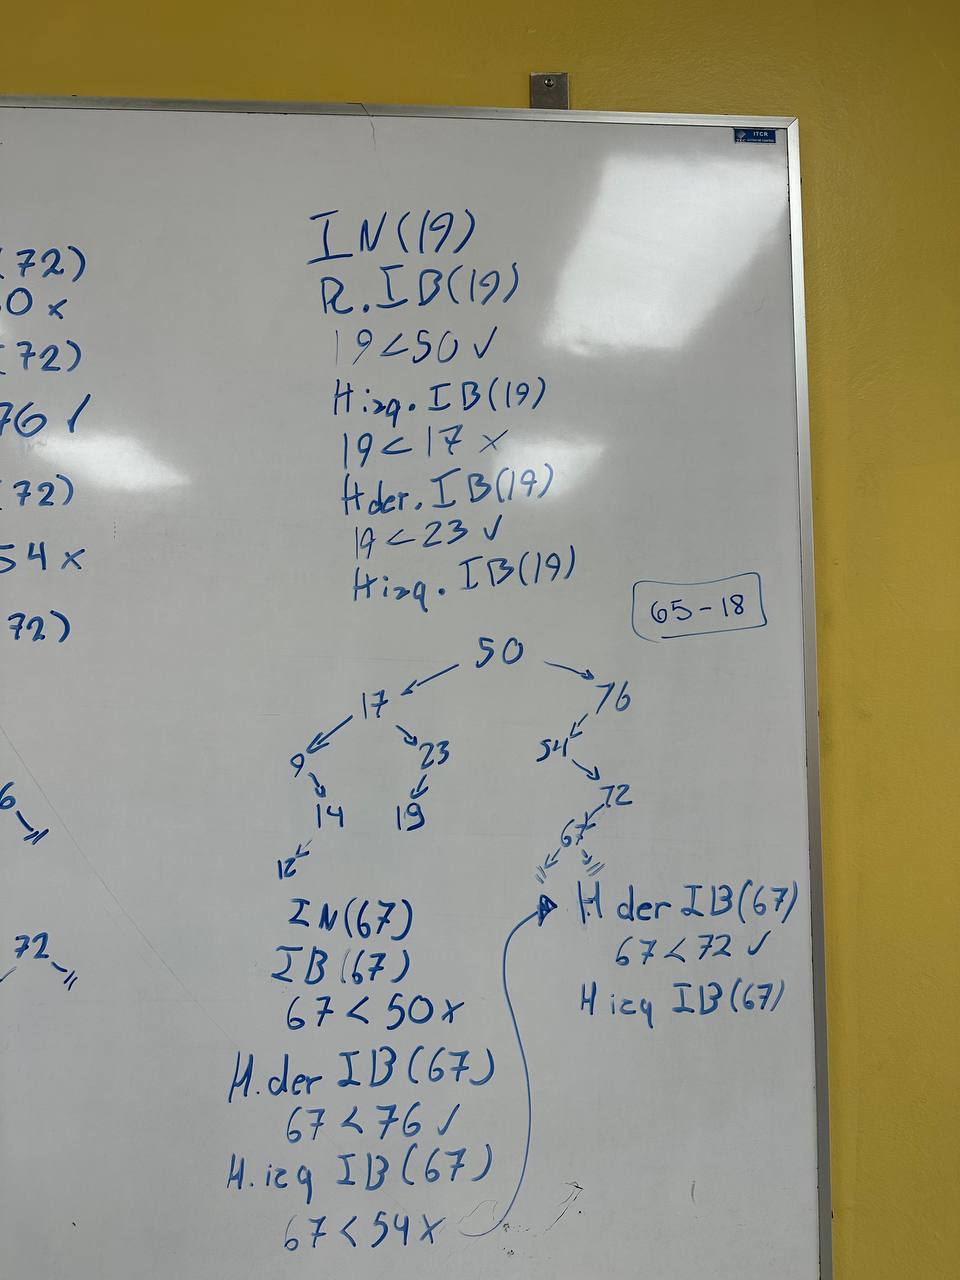 (72)
0 x
(72)
76 ✓
72)
54 x
72)
6
72
ITCR
IN(19)
R.IB(19)
19<50 ✓
Hizq.IB(19)
19<17 x
Hder.IB(19)
19<23 ✓
Hizq.IB(19)
65-18
50
17 76
9 23 54
14 19 72
12 67
IN(67)
IB(67)
67<50x
H.der IB(67)
67<76 ✓
H.izq IB(67)
67<54x
H der IB(67)
67<72 ✓
H izq IB(67)